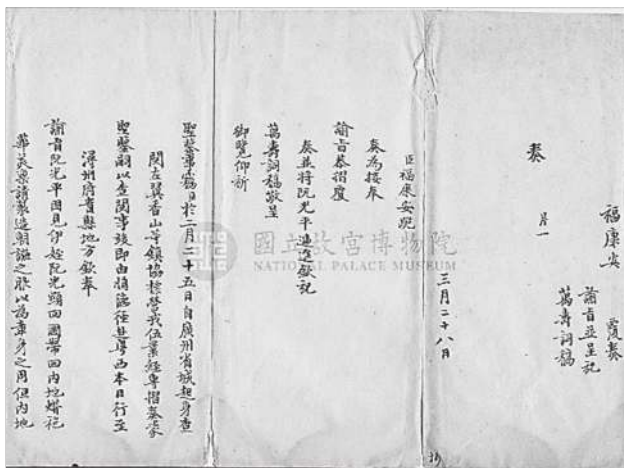 福康安
覆奏
諭旨並呈祝
萬壽詞稿
奏
片一
三月二十八日
臣福康安跪
奏為接奉
諭旨恭摺覆
奏並將阮光平獻祝
萬壽詞稿敬呈
御覽仰祈
聖鑒事竊臣於二月二十五日自廣州省城起身查
閱左翼香山等鎮協標營戎伍業經專摺奏蒙
聖鑒嗣以查閱事竣即由徑赴粵西本日行至
潯州府貴縣地方欽奉
諭旨阮光平因見伊姪阮光顯回國帶回內地蟒袍
華美請製造朝之服以為章身之用但內地
國立故宮博物院
NATIONAL PALACE MUSEUM